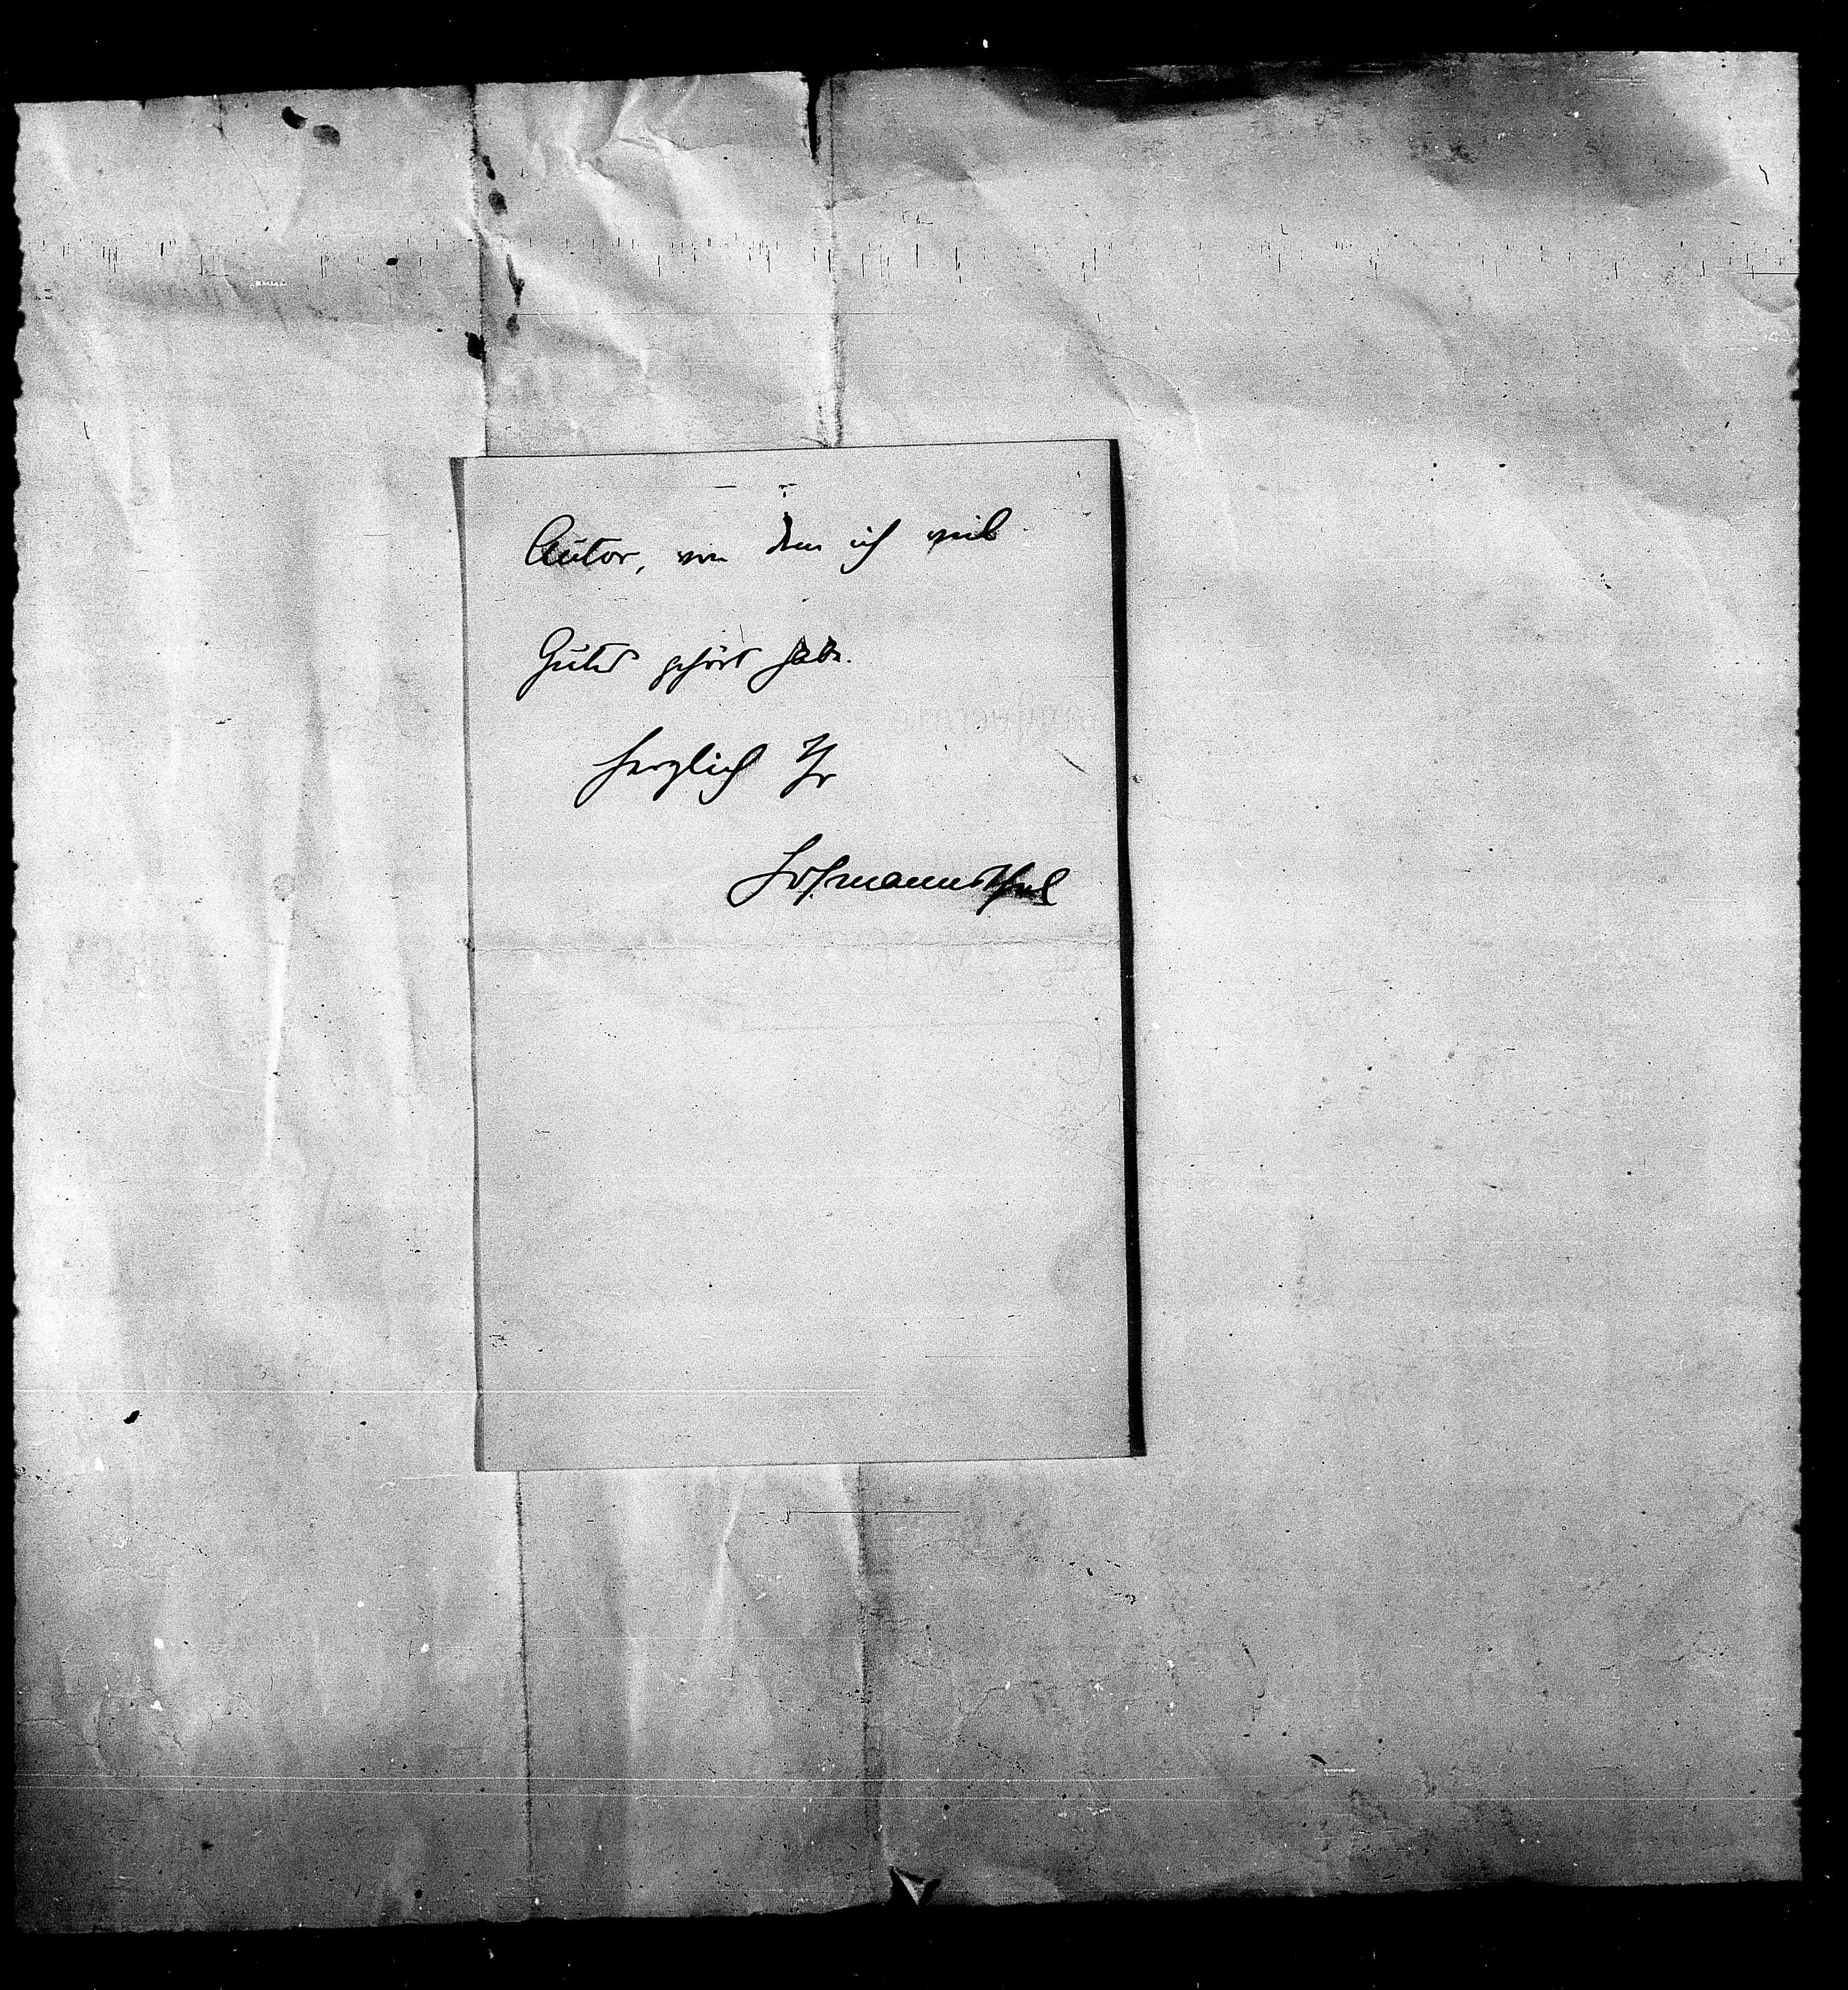 Autor, von dem ich viel
Gutes gehört habe.
Herzlich Ihr
Hofmannsthal